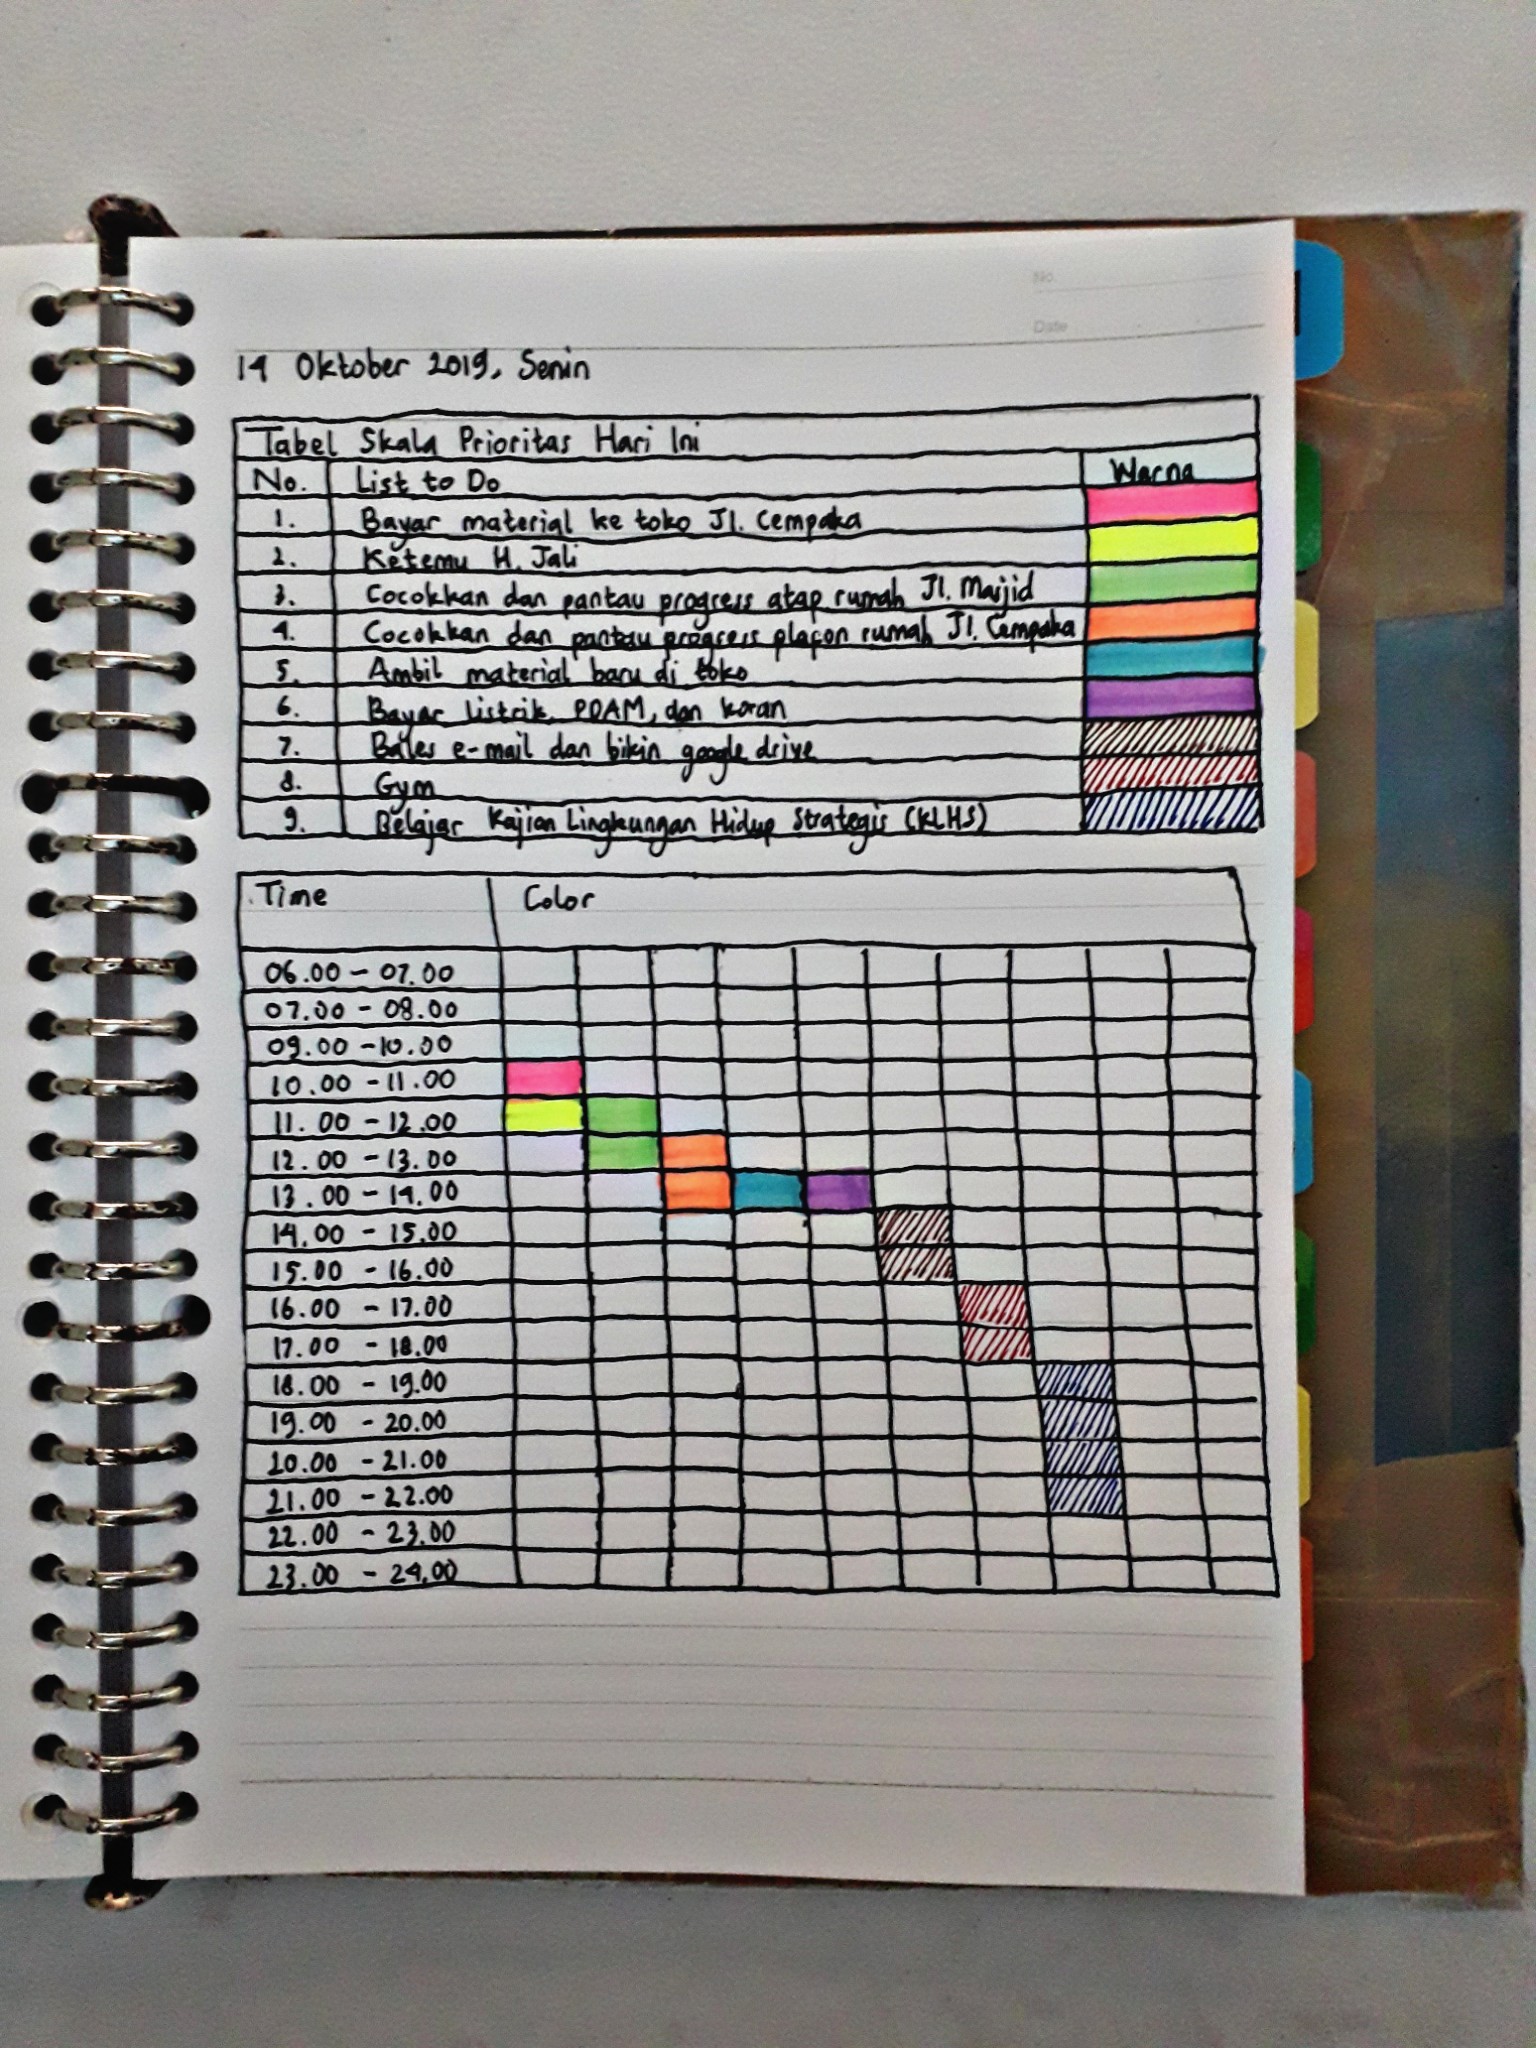 No.
Date
14 Oktober 2019, Senin
Tabel Skala Prioritas Hari Ini
No. List to Do Warna
1. Bayar material ke toko Jl. Cempaka
2. Ketemu H. Jali
3. Cocokkan dan pantau progress atap rumah Jl. Masjid
4. Cocokkan dan pantau progress plafon rumah Jl. Cempaka
5. Ambil material baru di toko
6. Bayar listrik, PDAM, dan koran
7. Bales e-mail dan bikin google drive
8. Gym
9. Belajar Kajian Lingkungan Hidup Strategis (KLHS)
Time Color
06.00 - 07.00
07.00 - 08.00
09.00 - 10.00
10.00 - 11.00
11.00 - 12.00
12.00 - 13.00
13.00 - 14.00
14.00 - 15.00
15.00 - 16.00
16.00 - 17.00
17.00 - 18.00
18.00 - 19.00
19.00 - 20.00
20.00 - 21.00
21.00 - 22.00
22.00 - 23.00
23.00 - 24.00